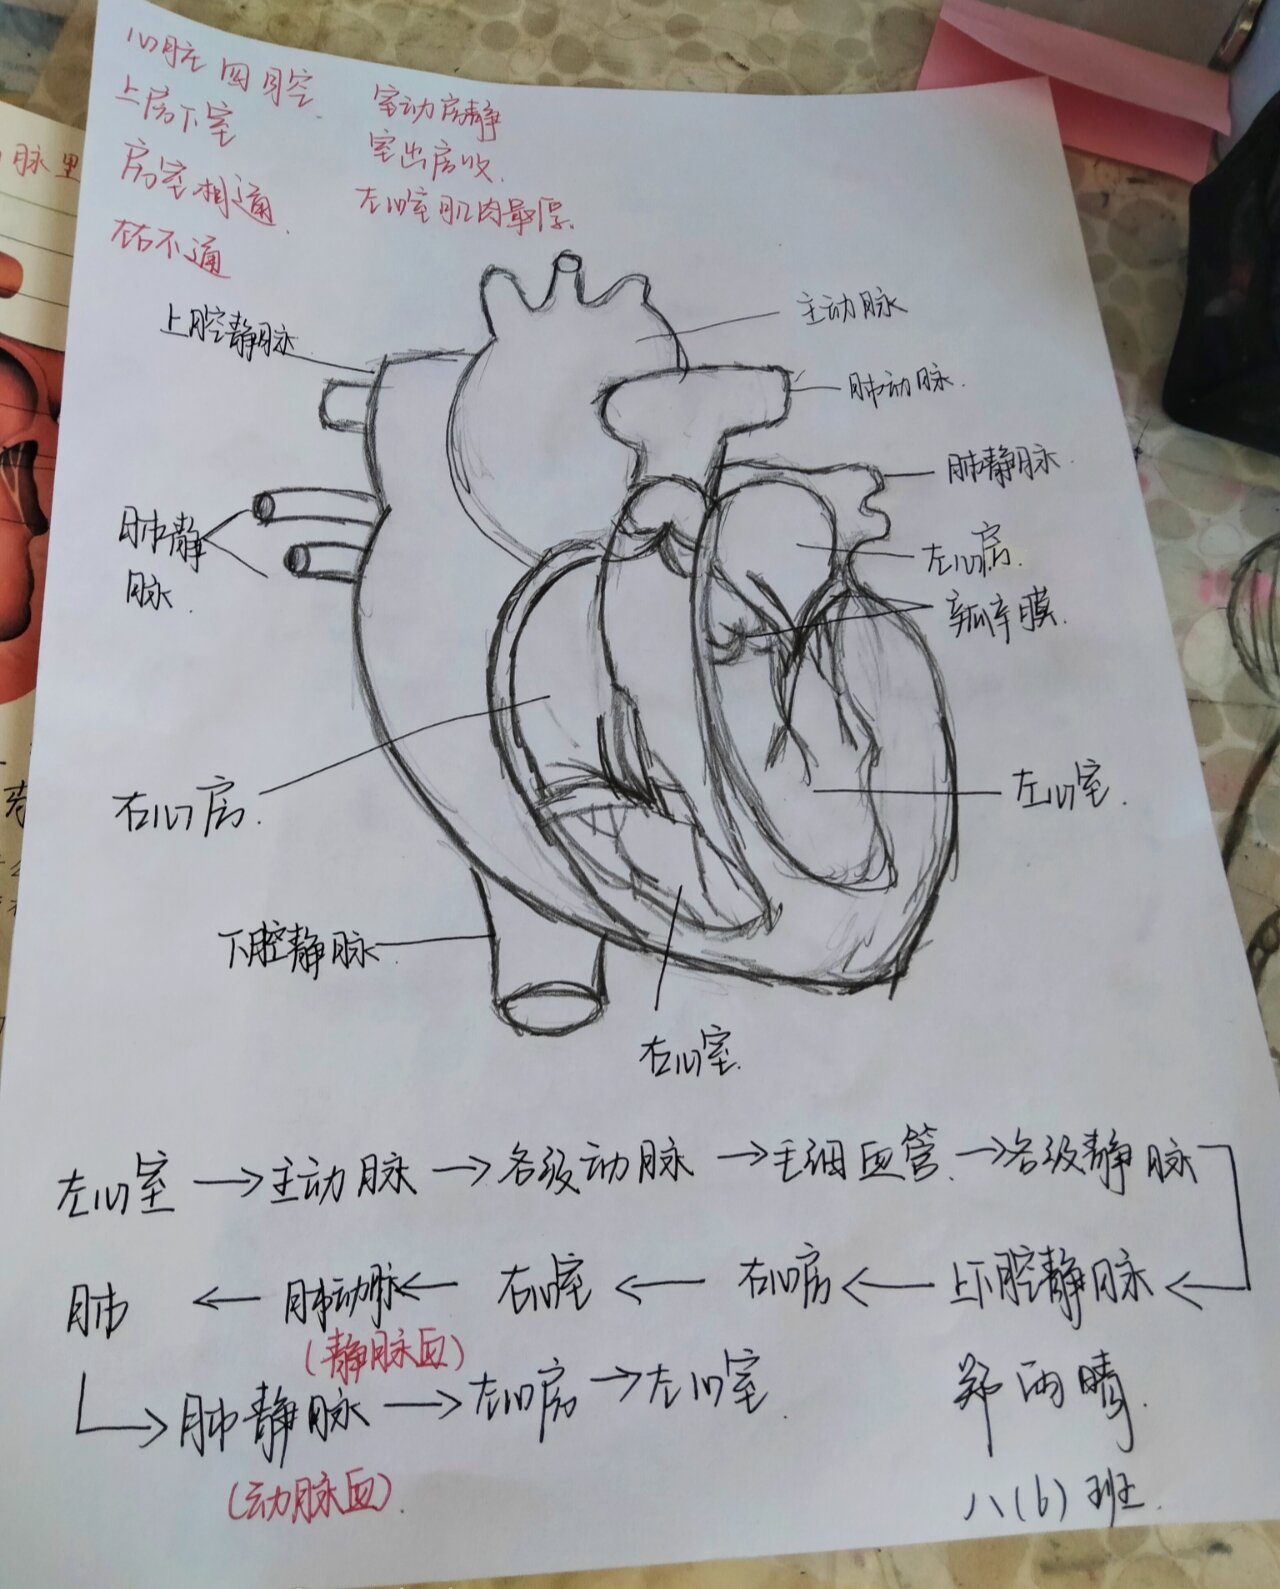 心脏四腔
上房下室
房室相通.
左右不通
室动房静
室出房收.
左心室肌肉最厚.
上腔静脉
主动脉
肺动脉.
肺静脉.
肺静
脉.
左心房.
瓣膜.
右心房.
左心室.
下腔静脉.
右心室.
左心室→主动脉→各级动脉→毛细血管.→各级静脉
肺←肺动脉←右心室←右心房←上下腔静脉←
(静脉血)
→肺静脉→左心房→左心室.
(动脉血).
郑雨晴.
八(6)班.
脉里